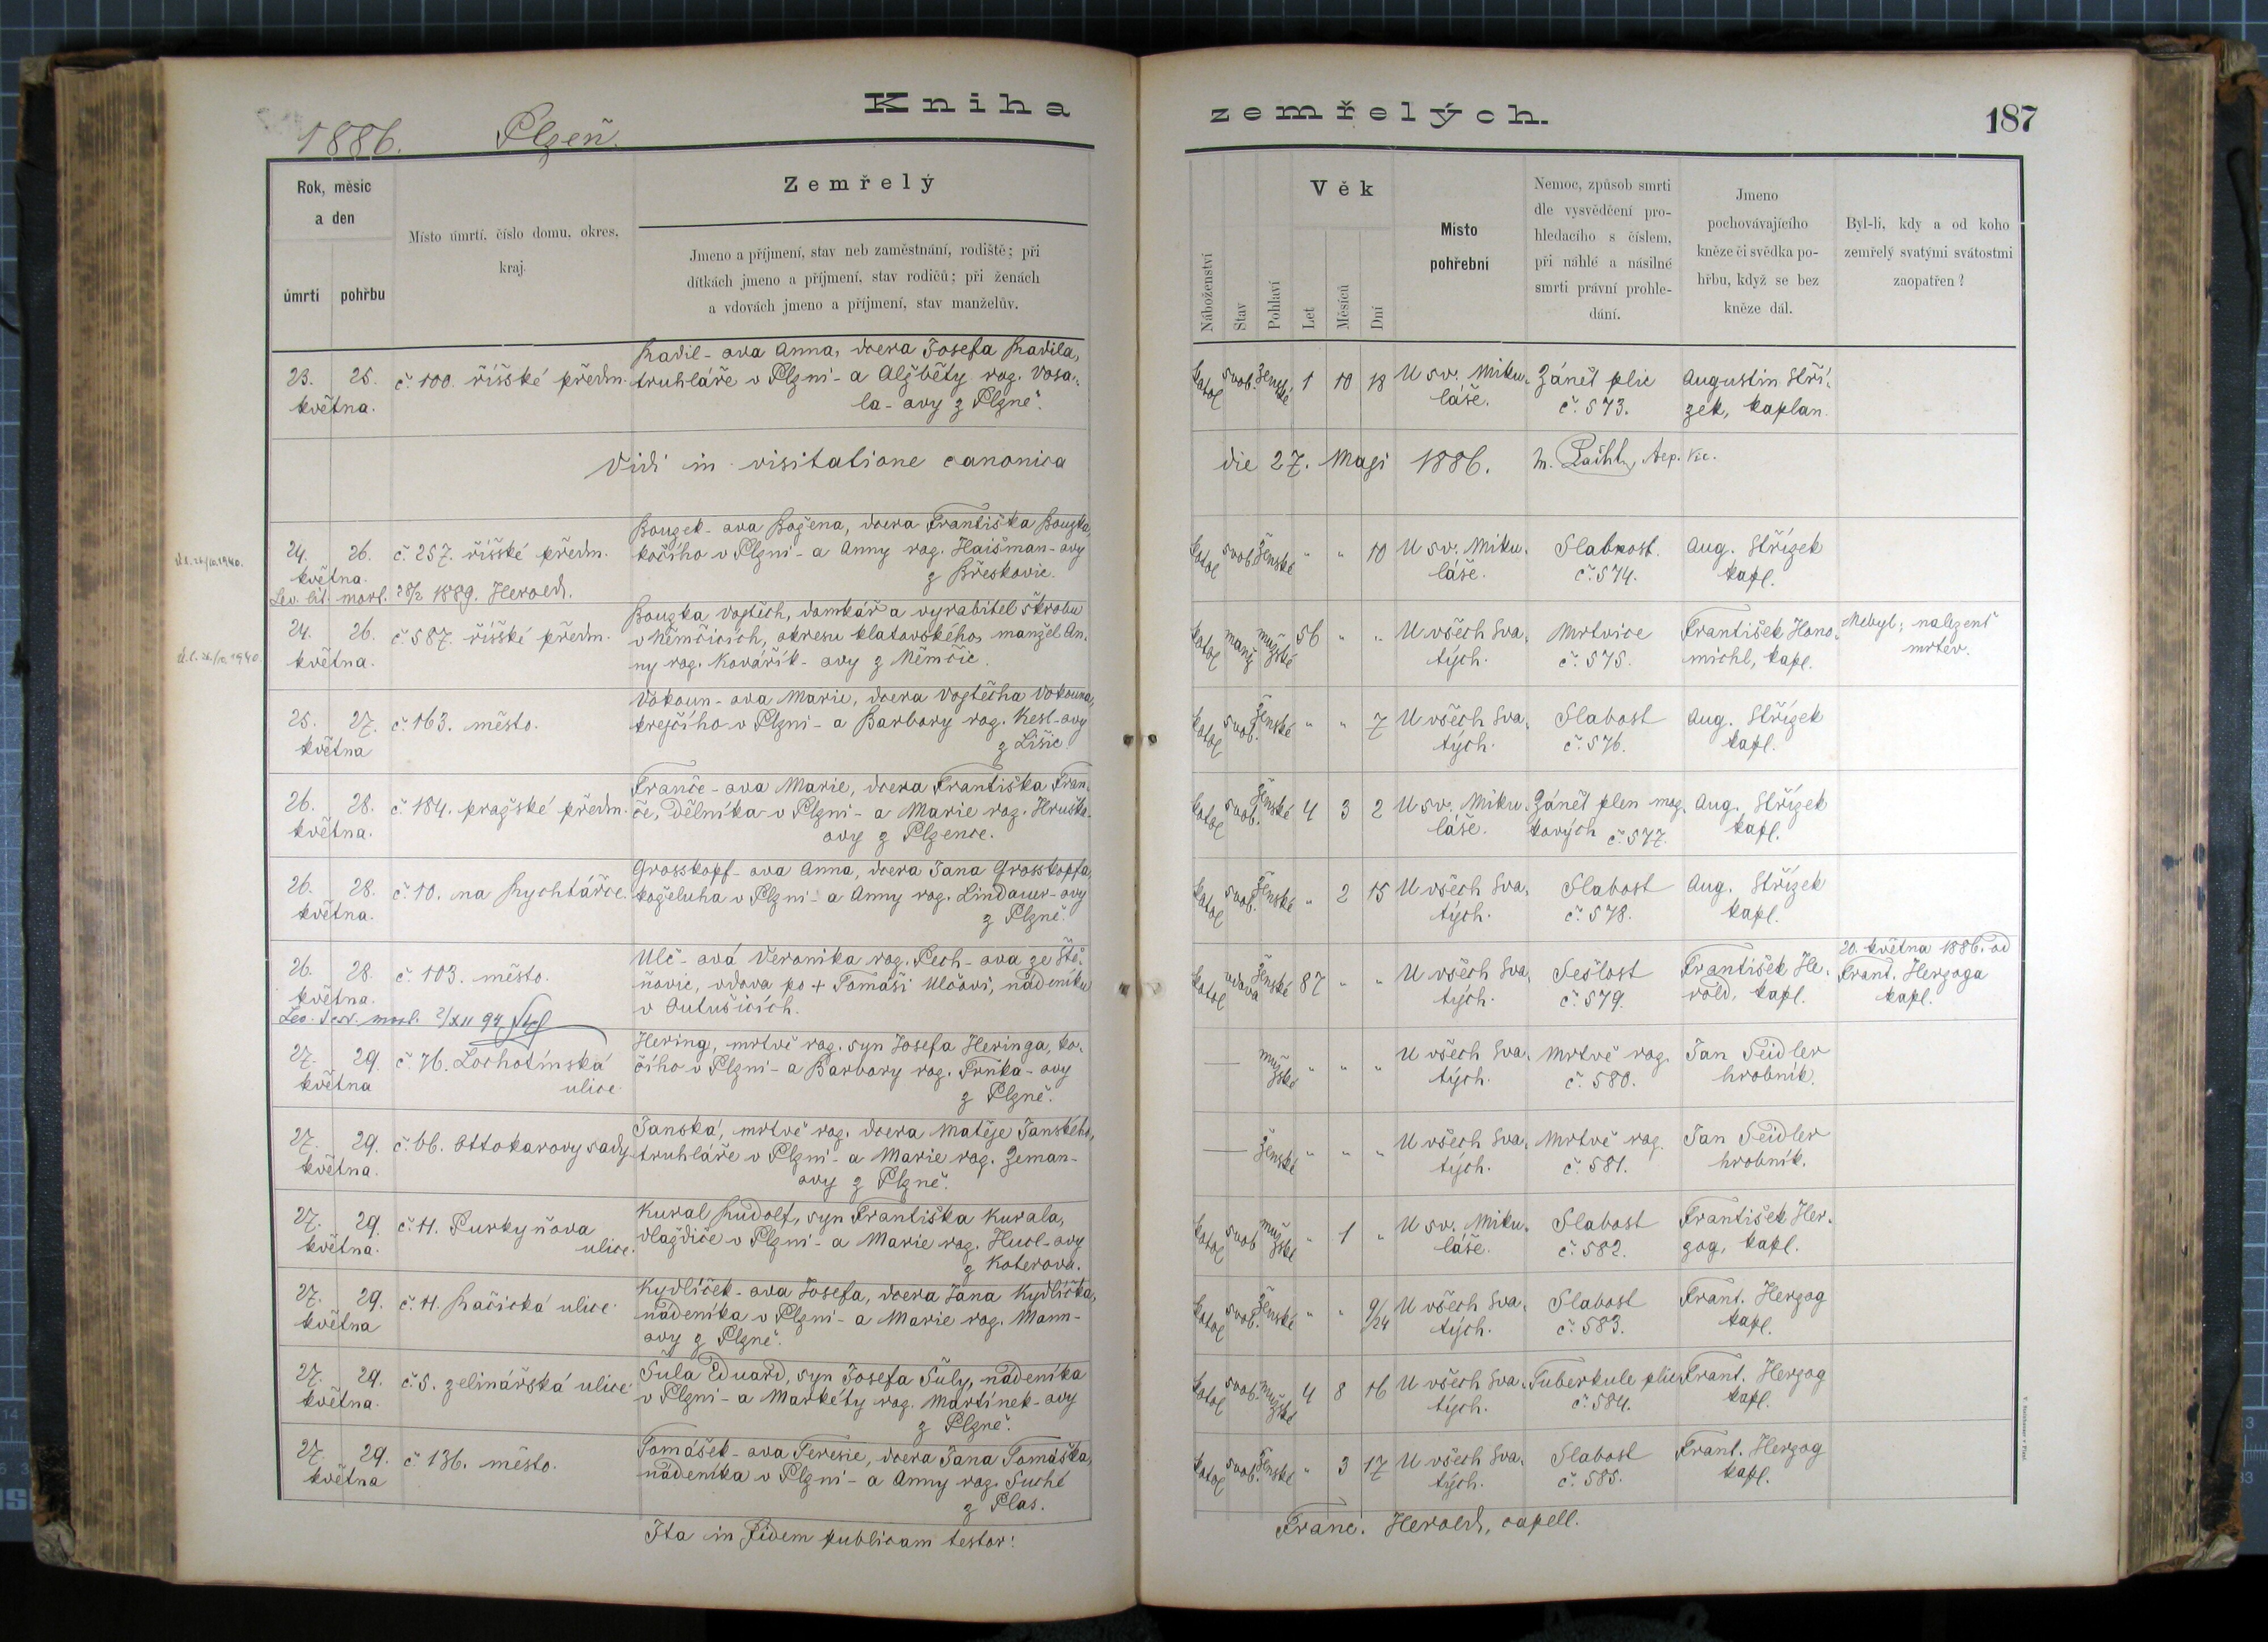 Kniha zemřelých.
187
1886. Plzeň.
Rok, měsíc
a den
úmrtí
pohřbu
Místo úmrtí, číslo domu, okres,
kraj.
Zemřelý
Jmeno a příjmení, stav neb zaměstnání, rodiště; při
dítkách jmeno a příjmení, stav rodičů; při ženách
a vdovách jmeno a příjmení, stav manželův.
Náboženství
Stav
Pohlaví
Věk
Let
Měsíců
Dní
Místo
pohřební
Nemoc, způsob smrti
dle vysvědčení pro-
hledacího s číslem,
při náhlé a násilné
smrti právní prohle-
dání.
Jmeno
pochovávajícího
kněze či svědka po-
hřbu, když se bez
kněze dál.
Byl-li, kdy a od koho
zemřelý svatými svátostmi
zaopatřen?
Radil-ova Anna, dcera Josefa Radila,
23. 25. č. 100. říšské předm. truhláře v Plzni - a Alžběty roz. Vosa-
května. la-ovy z Plzně.
katol svob. ženské 1 10 18 U sv. Miku- Zánět plic Augustin Stří-
láše. č. 573. zek, kaplan.
Vidi in visitatione canonica die 27. Maji 1886.
Bouzek-ova Božena, dcera Františka Bouzka,
24. 26. č. 257. říšské předm. kočího v Plzni - a Anny roz. Haišman-ovy
května. z Břeskovic.
28/2 1889. Herold.
katol svob. ženské " " 10 U sv. Miku- Slabost. Aug. Střízek
láše. č. 574. kapl.
Bouzka Vojtěch, domkář a vyrabitel škrobu
24. 26. č. 587. říšské předm. v Němčicích, okresu klatovského, manžel An-
května. ny roz. Kovářík-ovy z Němčic.
katol manž mužské 56 " " U všech Sva- Mrtvice František Hono- Nebyl; nalezenť
tých. č. 575. michl, kapl. mrtev.
Vokoun-ova Marie, dcera Vojtěcha Vokouna,
25. 27. č. 163. město. krejčího v Plzni - a Barbory roz. Kesl-ovy
května z Lišic.
katol svob. ženské " " 7 U všech Sva- Slabost Aug. Střízek
tých. č. 576. kapl.
Franče-ova Marie, dcera Františka Fran-
26. 28. č. 184. pražské předm. če, dělníka v Plzni - a Marie roz. Hruška-
května. ovy z Plzence.
katol svob. ženské 4 3 2 U sv. Miku- Zánět plen moz- Aug. Střízek
láše. kových č. 577. kapl.
Grosskopf-ova Anna, dcera Jana Grosskopfa,
26. 28. č. 10. na Rychtářce. koželuha v Plzni - a Anny roz. Lindauer-ovy
května. z Plzně.
katol svob. ženské " 2 15 U všech Sva- Slabost Aug. Střízek
tých. č. 578. kapl.
Ulč-ová Veronika roz. Pech-ova ze Ště-
26. 28. č. 103. město. ňovic, vdova po + Tomáši Ulčovi, nádeníku
května. v Dutušicích.
katol vdova ženské 87 " " U všech Sva- Sešlost František He- 20. května 1886. od
tých. č. 579. rold, kapl. Frant. Herzoga
kapl.
Hering, mrtvě roz. syn Josefa Heringa, ko-
27. 29. č. 76. Lochotínská čího v Plzni - a Barbory roz. Trnka-ovy
května ulice. z Plzně.
mužské " " " U všech Sva- Mrtvě roz. Jan Seidler
tých. č. 580. hrobník.
Janská, mrtvě roz. dcera Matěje Janského,
27. 29. č. 66. Ottokarovy sady truhláře v Plzni - a Marie roz. Zeman-
května. ovy z Plzně.
ženské " " " U všech Sva- Mrtvě roz. Jan Seidler
tých. č. 581. hrobník.
Kural Rudolf, syn Františka Kurala,
27. 29. č. 11. Purkyňova dlaždiče v Plzni - a Marie roz. Hucl-ovy
května. ulice. z Koterova.
katol svob mužské " 1 " U sv. Miku- Slabost František Her-
láše. č. 582. zog, kapl.
Kydlíček-ova Josefa, dcera Jana Kydlíčka,
27. 29. č. 11. Račická ulice. nádeníka v Plzni - a Marie roz. Mann-
května ovy z Plzně.
katol svob. ženské " " 9/24 U všech Sva- Slabost Frant. Herzog
tých. č. 583. kapl.
Šula Eduard, syn Josefa Šuly, nádeníka
27. 29. č. 5. zelinářská ulice v Plzni - a Markéty roz. Martínek-ovy
května. z Plzně.
katol svob. mužské 4 8 16 U všech Sva- Tuberkule plic Frant. Herzog
tých. č. 584. kapl.
Tomášek-ova Terezie, dcera Jana Tomáška,
27. 29. č. 136. město. nádeníka v Plzni - a Anny roz. Suché
května z Plas.
katol svob. ženské " 3 17 U všech Sva- Slabost Frant. Herzog
tých. č. 585. kapl.
Ita in fidem publicam testor: Franc. Herold, capell.